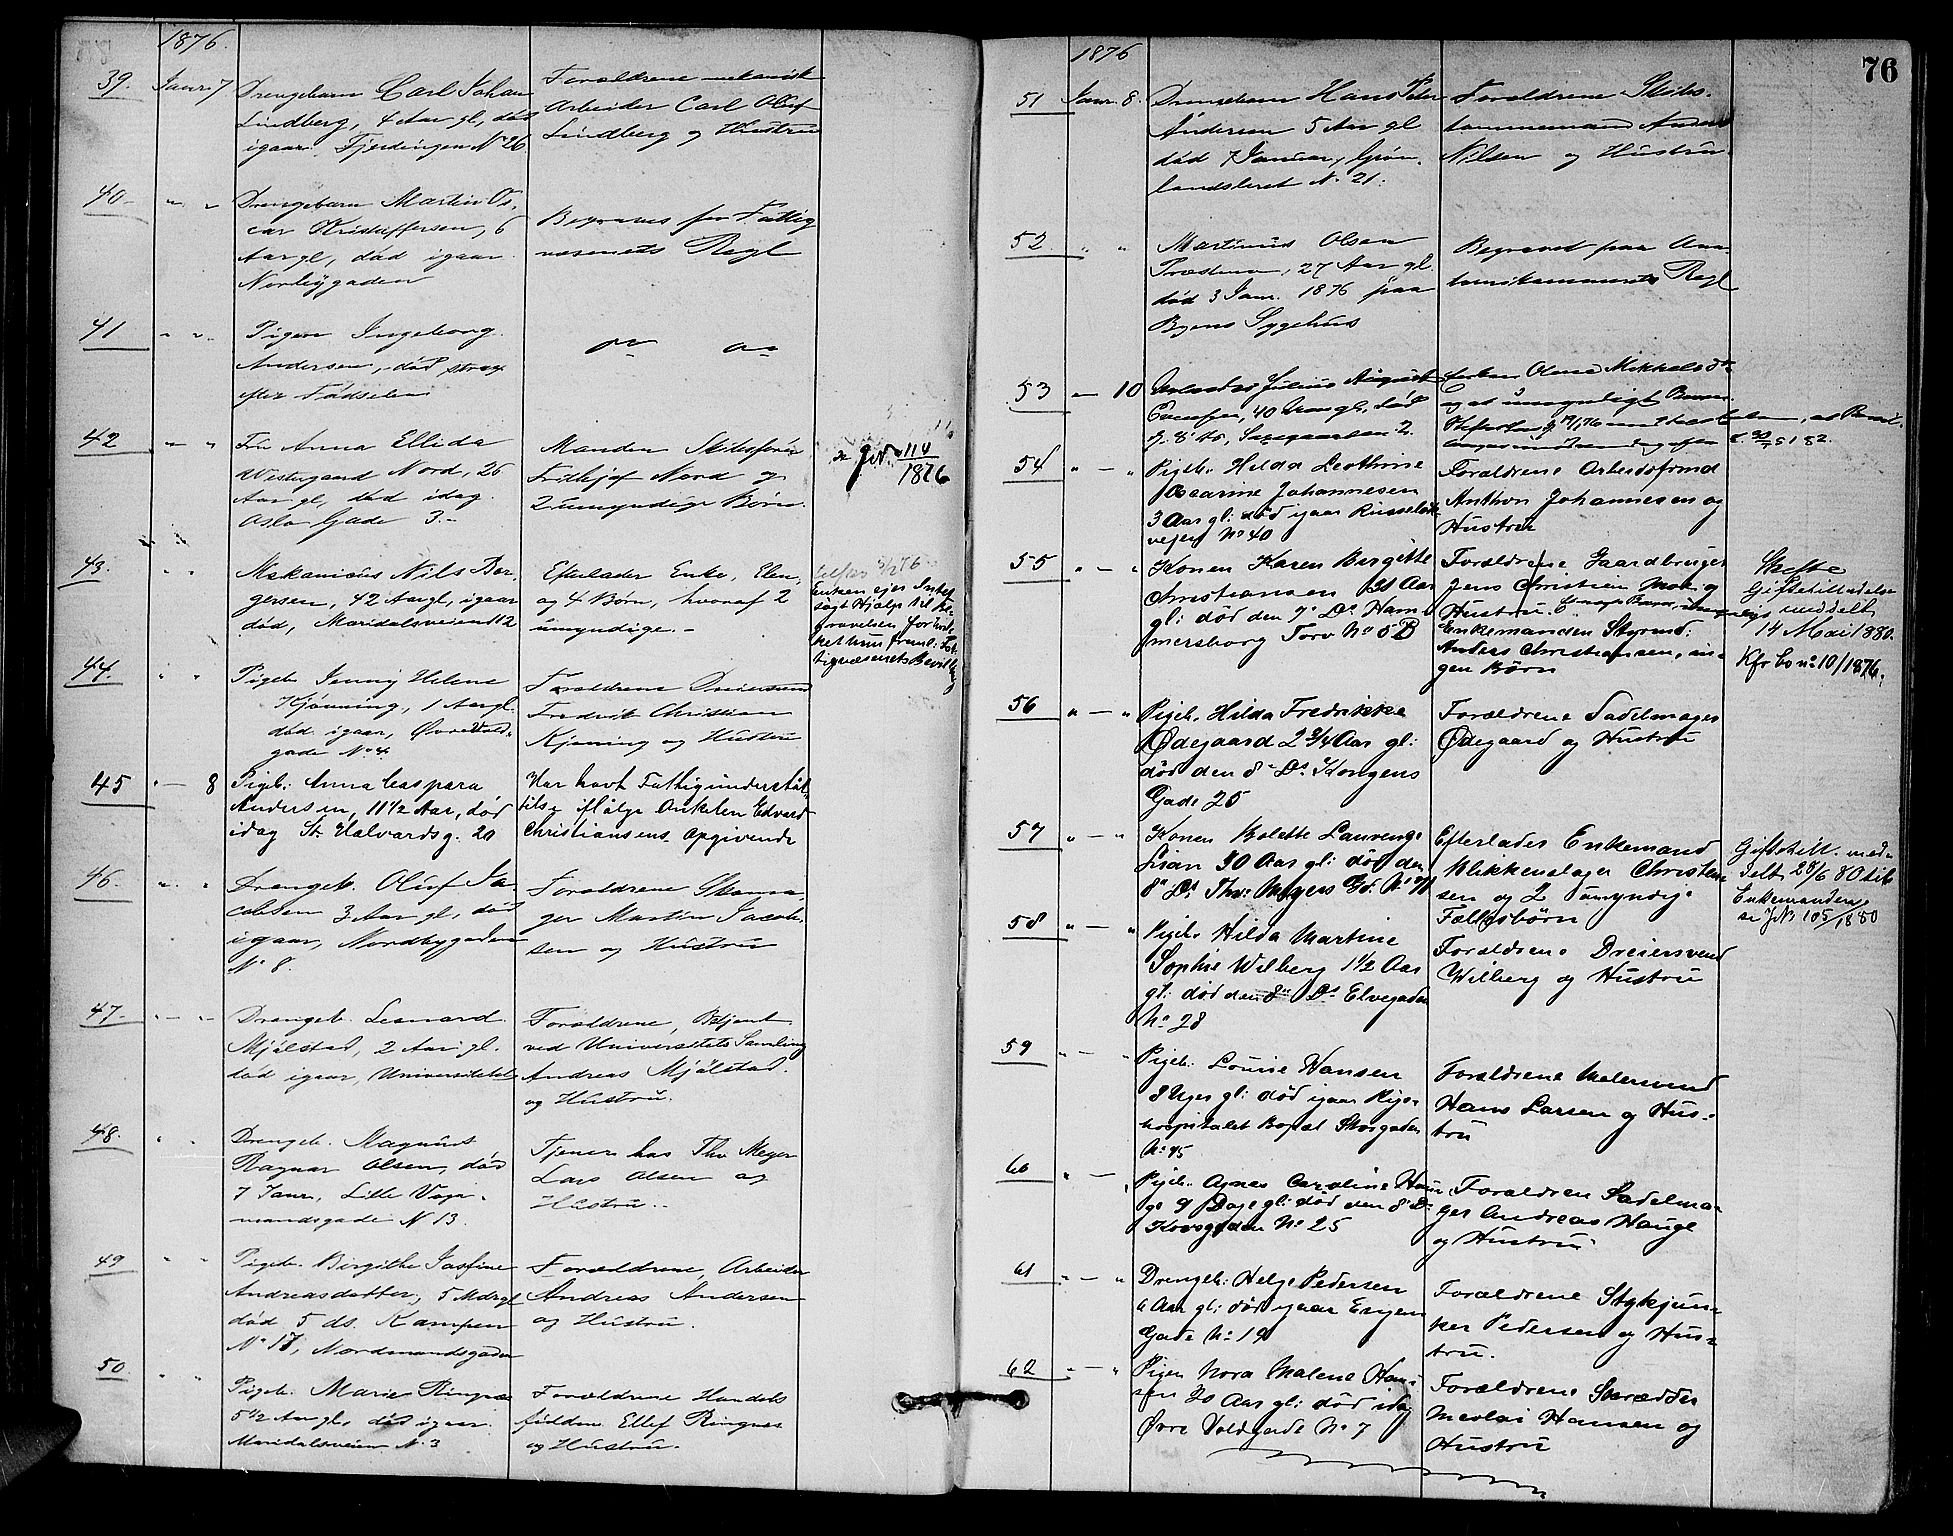 1876.
39. Janr. 7. Drengebarn Carl Johan
Lindberg, 4 Aar gl, død
igaar. Fjerdingen No 26
Forældrene mekanisk
Arbeider Carl Oluf
Lindberg og Hustru
40. " " Drengebarn Martin Os-
car Kristoffersen, 6
Aar gl, død igaar
Norbygaden
Begraves for Fattig
væsenets Regl
41 " " Pigen Ingeborg
Andersen, død strax
efter Fødselen
do do
42 " " Fru Anna Ellida
Westergaard Nord, 26
Aar gl, død idag
Oslo Gade 3.-
Manden Skibsfører
Fridtjof Nord og
2 umyndige Børn.
JN 110
1876
43. " " Mekanicus Nils Bør-
gersen, 42 Aar gl, igaar
død, Maridalsveien 12
Efterlader Enke, Elen,
og 4 Børn, hvoraf 2
umyndige.-
Enken ejer Intet
søgt Hjælp til Be-
gravelsen for hvil-
ket hun freml: Fat-
tigvæsenets Bevilling
44. " " Pigeb. Jenny Helene
Kjønning, 1 Aar gl.
død igaar, Øvre Vold-
gade No 4
Forældrene Dreiersvend
Fredrik Christian
Kjønning og Hustru
45 " — 8 Pigeb: Anna Caspara
Andersen, 11 1/2 Aar, død
idag St. Halvardsg. 20
Har havt Fattigunderstøt-
telse ifølge Onkelen Edvard
Christiansens Opgivende
46. " " Drengeb. Oluf Ja-
cobsen 3 Aar gl, død
igaar, Nordbygaden
No 8.
Forældrene Skoma-
ger Martin Jacob-
sen og Hustru
47. " " Drengeb. Leonard
Mjølstad, 2 Aar gl.
død igaar, Universitetet
Forældrene, Betjent
ved Universitets Samling
Andreas Mjølstad.
og Hustru.
48. " " Drengeb. Magnus
Ragnar Olsen, død
7 Janr, Lille Vogn-
mandsgade N 13.
Tjener hos Thv Meyer
Lars Olsen og
Hustru..
49 " " Pigeb. Birgithe Josfine
Andreasdatter, 5 Mdr gl
død 5 ds. Kampen
No 17, Nordmandsgaden
Forældrene, Arbeider
Andreas Andersen
og Hustru.
50. " " Pigeb. Marie Ringnæs
5 1/2 Aar gl, død igaar.
Maridalsveien N. 3
Forældrene Handels
Ellef Ringnæs
og Hustru.
76
1876
51 Janr. 8. Drengebarn Hans Peter
Andersen 5 Aar gl
død 7 Januar, Grøn-
landsleret No 21.
Forældrene Skibs-
tømmermand Anders
Nilsen og Hustru.
52. " " Martinus Olsen
27 Aar gl.
død 3 Janr. 1876 paa
Byens Sygehus
Begravet paa Ana-
tomikammerets Regl
53 " — 10 Julius August
40 Aar gl, død
d. 8 ds, 2.
Enken Olena Mikkelsdr
og et umyndigt Barn.
54 " — " Pigeb. Hilda Leothine
Oscarine Johannesen
3 Aar gl: død igaar Russeløk-
vejen No 40
Forældrene Arbeidsformd
Anthon Johannesen og
Hustru
55 " — " Konen Karen Birgitte
Christiansen 21 Aar
gl: død den 7de Ds Ham-
mersborg Torv No 5 B
Forældrene Gaardbruger
Jens Christian Moe og
Hustru.
Enkemanden Styrmd:
Anders Christiansen, in-
gen Børn
Skifte
Giftetilladelse
meddelt
14 Mai 1880.
Kfr bo no 10/1876.
56 " — " Pigeb. Hilda Fredrikke
Ødegaard 2 3/4 Aar gl:
død den 8de Ds Kongens
Gade 25
Forældrene Sadelmager
Ødegaard og Hustru
57 " — " Konen Bolette Laurenze
30 Aar gl: død den
8de Ds Thv: Meyers Gd: No 71
Efterlader Enkemand
Blikkenslager Christen-
sen og 2 umyndige
Fællesbørn
Giftetill. med-
delt 28/6 80 til
Enkemanden,
se JN 105/1880
58 " — " Pigeb. Hilda Martine
Sophie Wilberg 1 1/2 Aar
gl: død den 8de Ds Elvegaden
No 28
Forældrene Dreiersvend
Wilberg og Hustru
59 " — " Pigeb. Louise Hansen
3 Uger gl: død igaar Rigs-
hospitalet Bopæl Storgaden
No 45
Forældrene Malersvend
Hans Larsen og Hus-
tru
60 " — " Pigeb. Agnes Caroline Hau-
ge 9 Dage gl: død den 8de Ds
Korsgaden No 25
Forældrene Sadelma-
ger Andreas Hauge
og Hustru
61 " — " Drengeb: Helge Pedersen
6 Aar gl: død igaar Engens
Gade No 19
Forældrene Stykjun-
ker Pedersen og Hus-
tru.
62 " — " Pigen Nora Malene Han-
sen 20 Aar gl: død idag
Øvre Voldgade No 7
Forældrene Skrædder
Nicolai Hansen og
Hustru